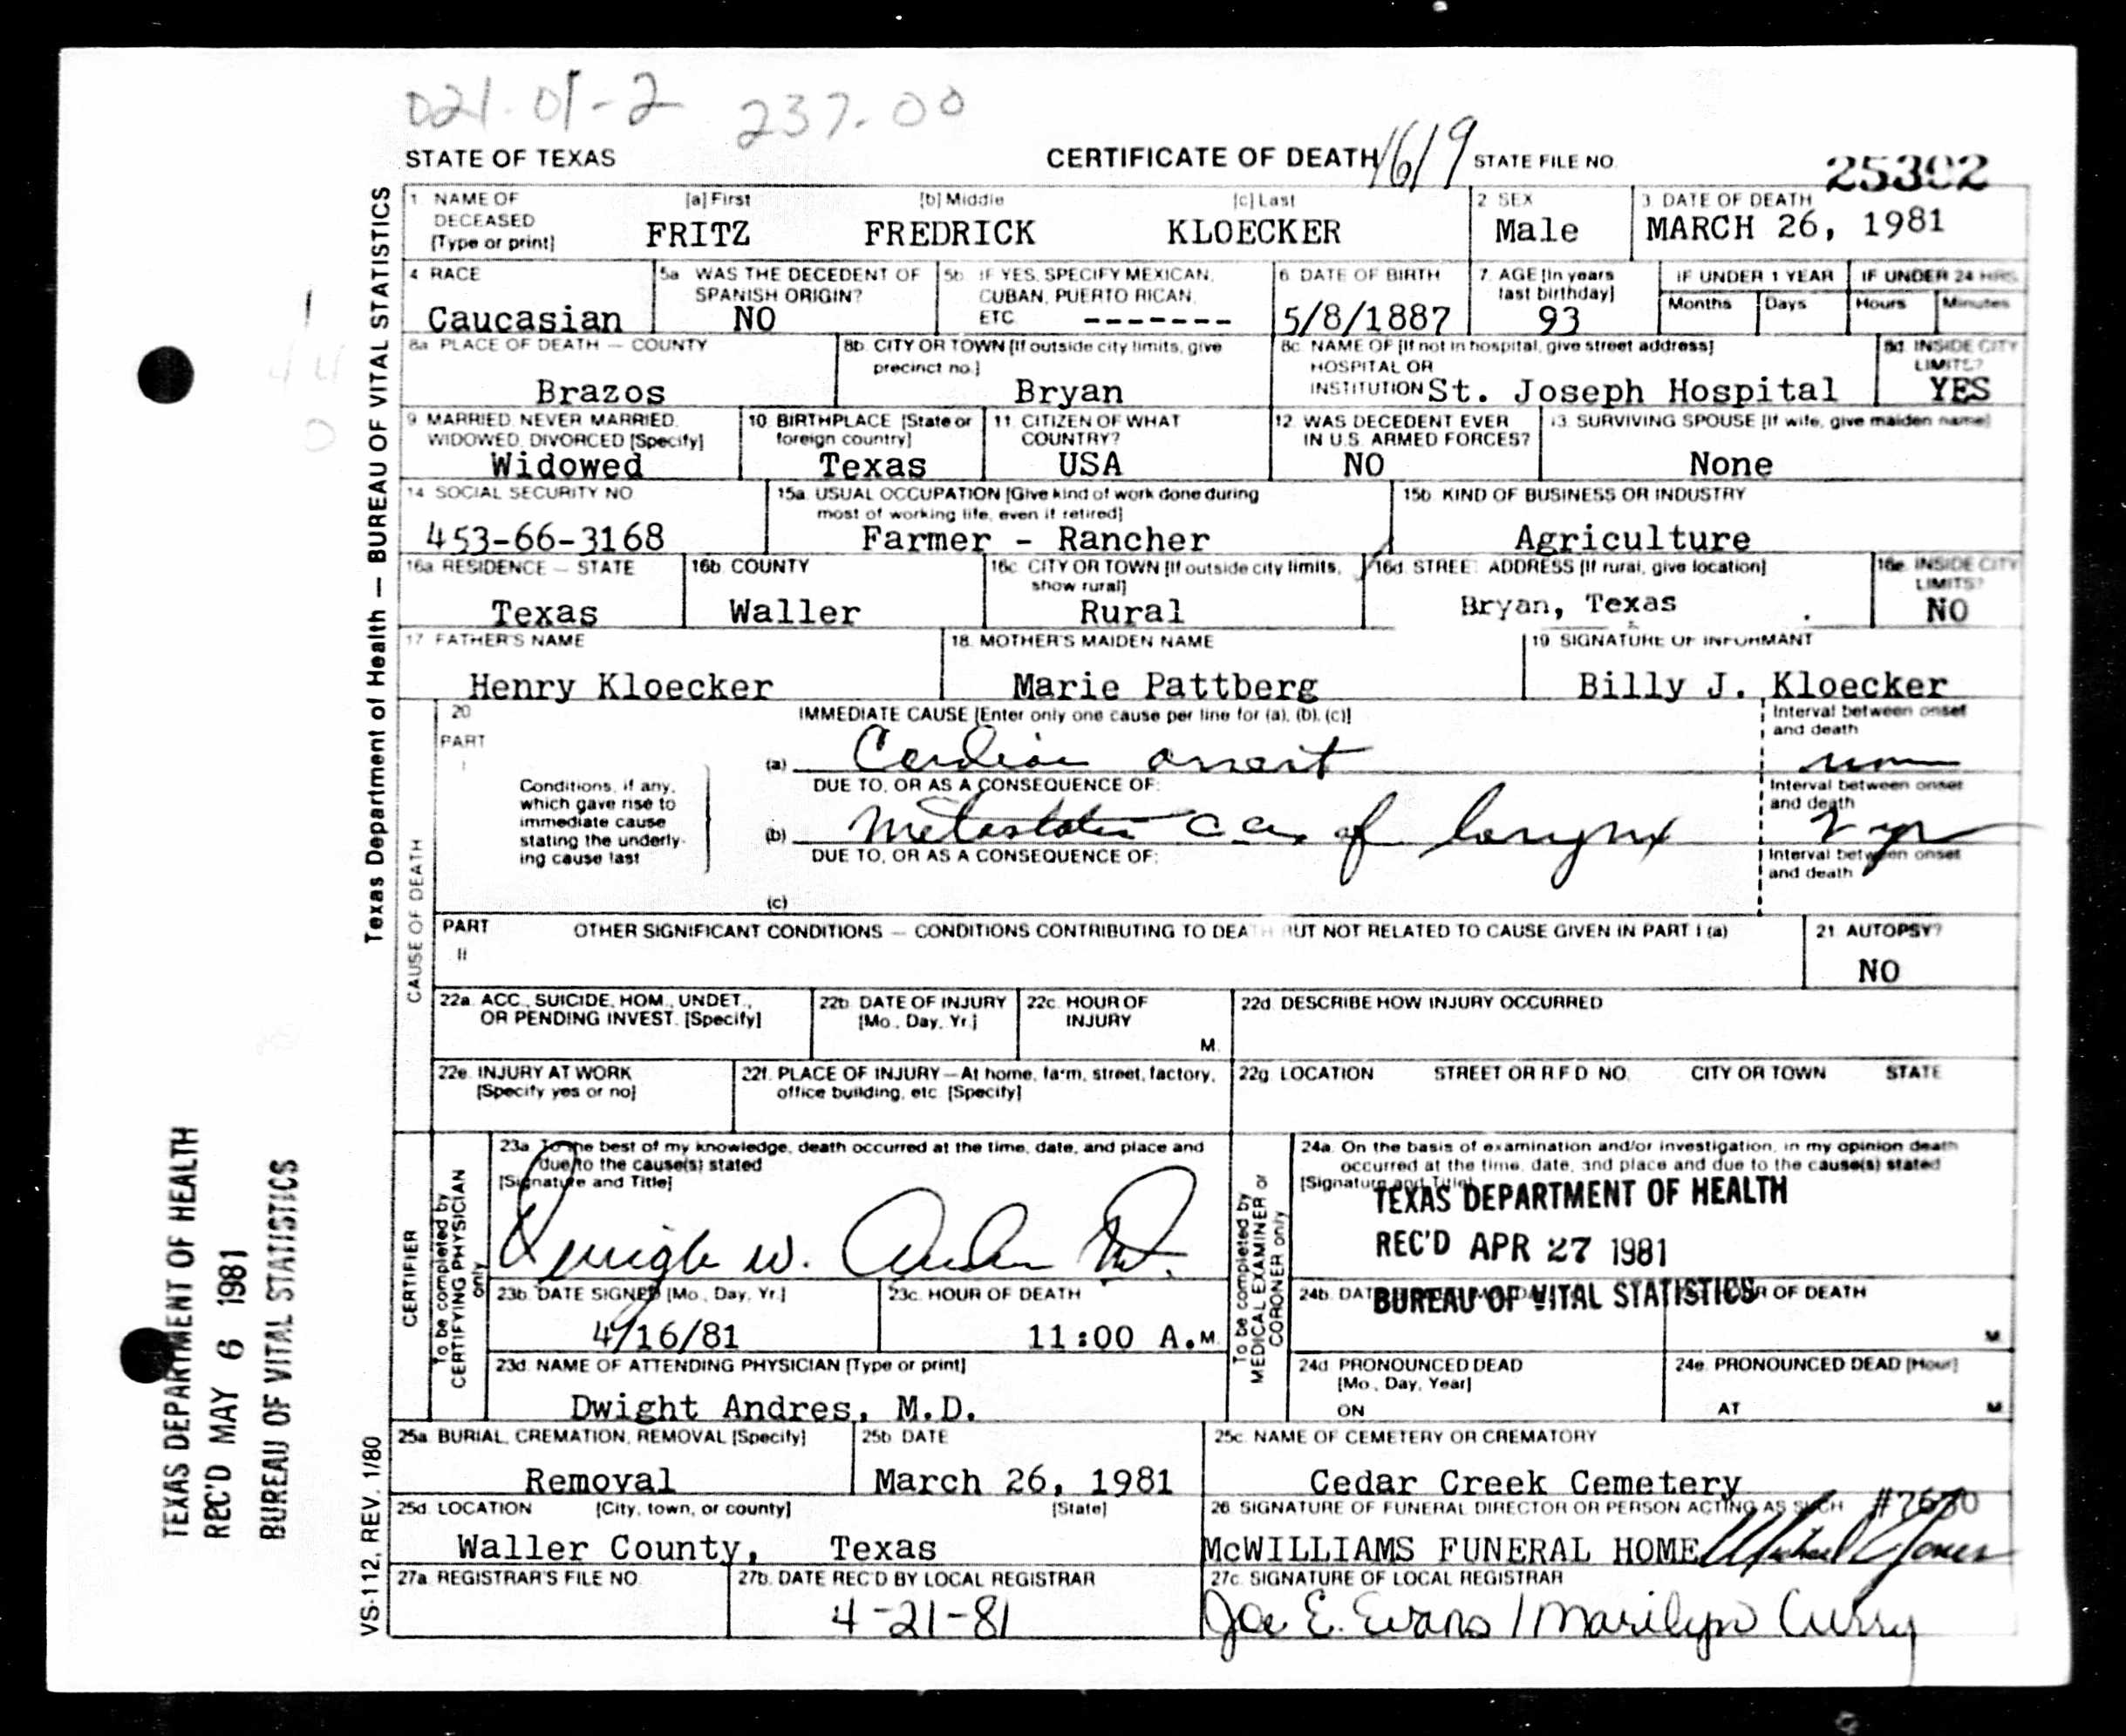 021.01-2 237.00
STATE OF TEXAS CERTIFICATE OF DEATH 1619 STATE FILE NO. 25302
Texas Department of Health — BUREAU OF VITAL STATISTICS
1. NAME OF DECEASED [Type or print] [a] First [b] Middle [c] Last
FRITZ FREDRICK KLOECKER
2. SEX
Male
3. DATE OF DEATH
MARCH 26, 1981
4. RACE
Caucasian
5a. WAS THE DECEDENT OF SPANISH ORIGIN?
NO
5b. IF YES, SPECIFY MEXICAN, CUBAN, PUERTO RICAN, ETC. -------
6. DATE OF BIRTH
5/8/1887
7. AGE [In years last birthday]
93
IF UNDER 1 YEAR
Months Days
IF UNDER 24 HRS.
Hours Minutes
8a. PLACE OF DEATH — COUNTY
Brazos
8b. CITY OR TOWN [If outside city limits, give precinct no.]
Bryan
8c. NAME OF [If not in hospital, give street address] HOSPITAL OR INSTITUTION
St. Joseph Hospital
8d. INSIDE CITY LIMITS?
YES
9. MARRIED, NEVER MARRIED, WIDOWED, DIVORCED [Specify]
Widowed
10. BIRTHPLACE [State or foreign country]
Texas
11. CITIZEN OF WHAT COUNTRY?
USA
12. WAS DECEDENT EVER IN U.S. ARMED FORCES?
NO
13. SURVIVING SPOUSE [If wife, give maiden name]
None
14. SOCIAL SECURITY NO.
453-66-3168
15a. USUAL OCCUPATION [Give kind of work done during most of working life, even if retired]
Farmer - Rancher
15b. KIND OF BUSINESS OR INDUSTRY
Agriculture
16a. RESIDENCE — STATE
Texas
16b. COUNTY
Waller
16c. CITY OR TOWN [If outside city limits, show rural]
Rural
16d. STREET ADDRESS [If rural, give location]
Bryan, Texas
16e. INSIDE CITY LIMITS?
NO
17. FATHER'S NAME
Henry Kloecker
18. MOTHER'S MAIDEN NAME
Marie Pattberg
19. SIGNATURE OF INFORMANT
Billy J. Kloecker
CAUSE OF DEATH
20. PART I
IMMEDIATE CAUSE [Enter only one cause per line for (a), (b), (c)]
Conditions, if any, which gave rise to immediate cause stating the underlying cause last
(a) Cardiac arrest
Interval between onset and death
DUE TO, OR AS A CONSEQUENCE OF:
(b) Metastatic Ca. of larynx
Interval between onset and death
2 yr
DUE TO, OR AS A CONSEQUENCE OF:
(c)
Interval between onset and death
PART II OTHER SIGNIFICANT CONDITIONS — CONDITIONS CONTRIBUTING TO DEATH BUT NOT RELATED TO CAUSE GIVEN IN PART I (a)
21. AUTOPSY?
NO
22a. ACC., SUICIDE, HOM., UNDET., OR PENDING INVEST. [Specify]
22b. DATE OF INJURY [Mo., Day, Yr.]
22c. HOUR OF INJURY M.
22d. DESCRIBE HOW INJURY OCCURRED
22e. INJURY AT WORK [Specify yes or no]
22f. PLACE OF INJURY — At home, farm, street, factory, office building, etc. [Specify]
22g. LOCATION STREET OR R.F.D. NO. CITY OR TOWN STATE
CERTIFIER
To be completed by CERTIFYING PHYSICIAN only
23a. To the best of my knowledge, death occurred at the time, date, and place and due to the cause(s) stated
[Signature and Title]
Dwight W. Andres M.D.
23b. DATE SIGNED [Mo., Day, Yr.]
4/16/81
23c. HOUR OF DEATH
11:00 A.M.
23d. NAME OF ATTENDING PHYSICIAN [Type or print]
Dwight Andres, M.D.
To be completed by MEDICAL EXAMINER or CORONER only
24a. On the basis of examination and/or investigation, in my opinion death occurred at the time, date, and place and due to the cause(s) stated
[Signature and Title]
TEXAS DEPARTMENT OF HEALTH
REC'D APR 27 1981
BUREAU OF VITAL STATISTICS
24b. DAT
R OF DEATH
M.
24d. PRONOUNCED DEAD [Mo., Day, Year]
ON
24e. PRONOUNCED DEAD [Hour]
AT M.
25a. BURIAL, CREMATION, REMOVAL [Specify]
Removal
25b. DATE
March 26, 1981
25c. NAME OF CEMETERY OR CREMATORY
Cedar Creek Cemetery
25d. LOCATION [City, town, or county] [State]
Waller County, Texas
26. SIGNATURE OF FUNERAL DIRECTOR OR PERSON ACTING AS SUCH
McWILLIAMS FUNERAL HOME
27a. REGISTRAR'S FILE NO.
27b. DATE REC'D BY LOCAL REGISTRAR
4-21-81
27c. SIGNATURE OF LOCAL REGISTRAR
Joe E. Evans / Marilyn Curry
VS-112, REV. 1/80
TEXAS DEPARTMENT OF HEALTH
REC'D MAY 6 1981
BUREAU OF VITAL STATISTICS